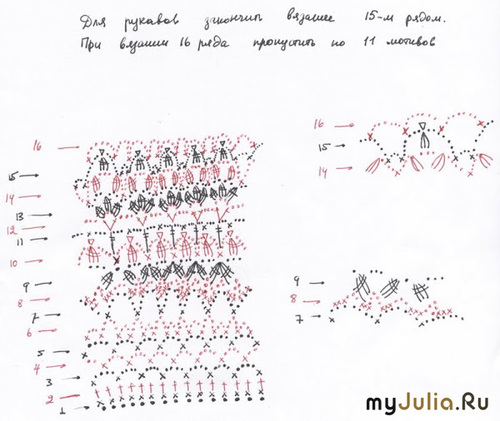 Для рукавов закончить вязание 15-м рядом.
При вязании 16 ряда пропустить по 11 мотивов
16
15
14
13
12
11
10
9
8
7
6
5
4
3
2
1
16
15
14
9
8
7
myJulia.Ru